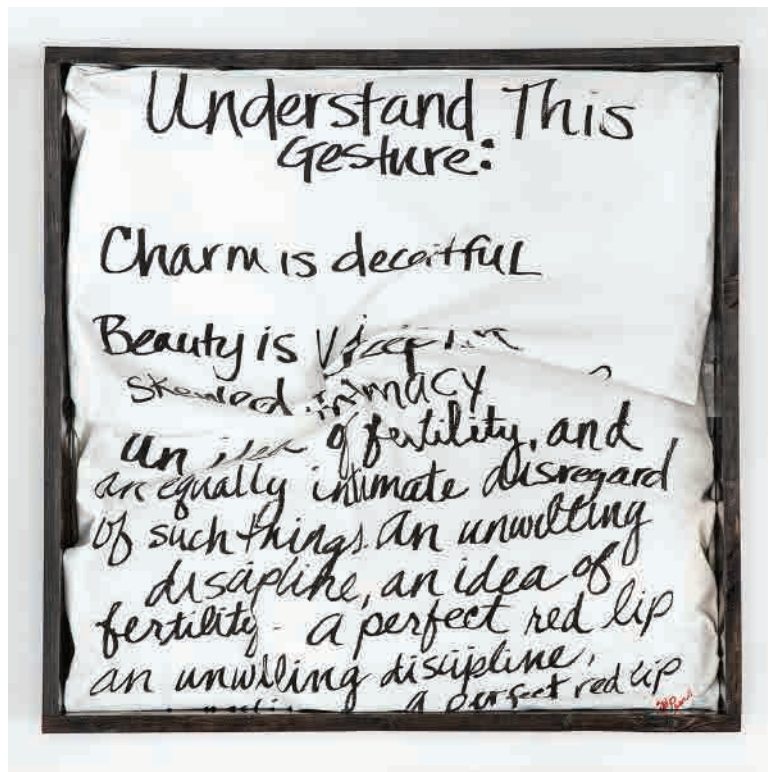 Understand This
Gesture:
Charm is deceitful
Beauty is
skewed intimacy
an idea of fertility, and
an equally intimate disregard
of such things. An unwilting
discipline, an idea of
fertility - a perfect red lip
an unwilling discipline,
a perfect red lip